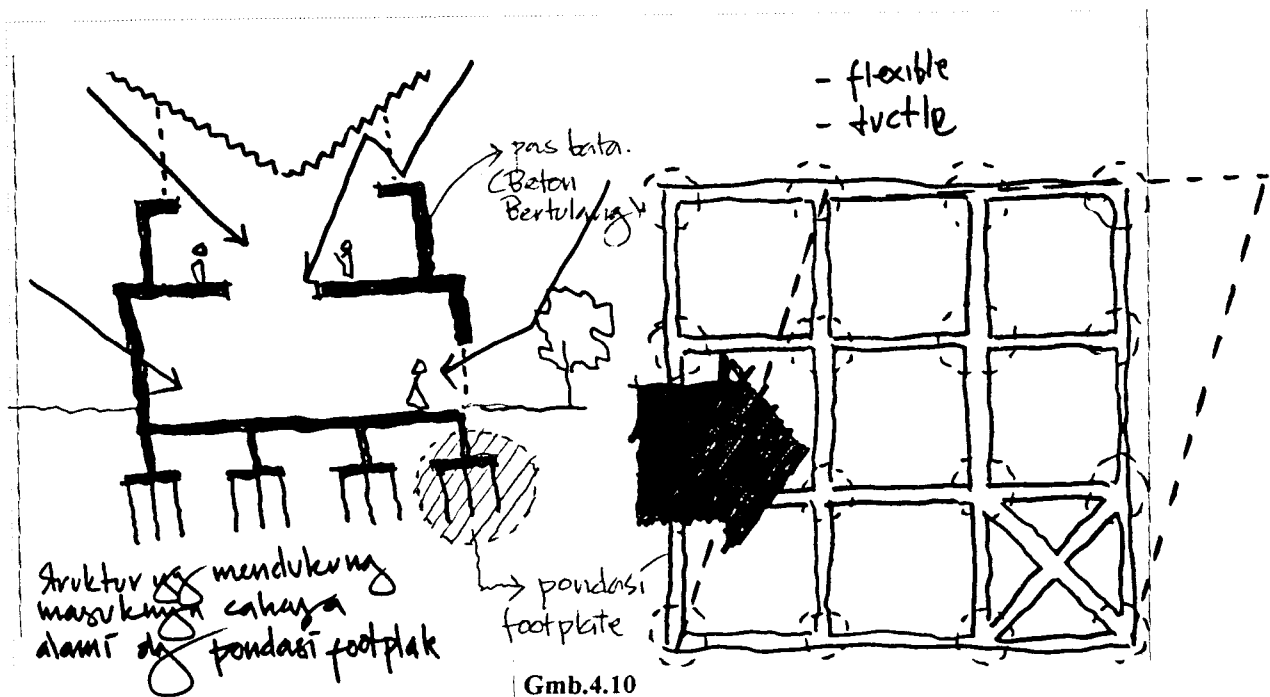 - flexible
- ductle
pas bata.
(Beton
Bertulang)
struktur yg mendukung
masuknya cahaya
alami dg pondasi footplak
pondasi
footplate
Gmb.4.10